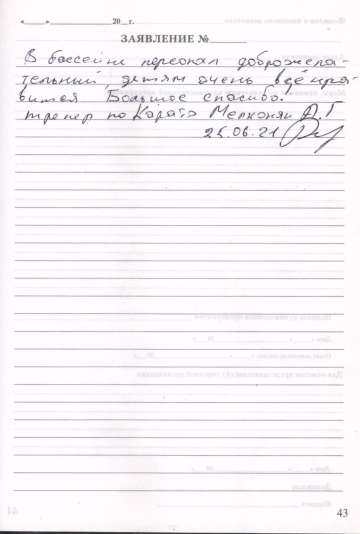 «____»______________20__г.
ЗАЯВЛЕНИЕ №______
В бассейне персонал доброжела-
тельный, детям очень всё нра-
вится Большое спасибо.
тренер по Каратэ Мелконян А.Г
25.06.21
43